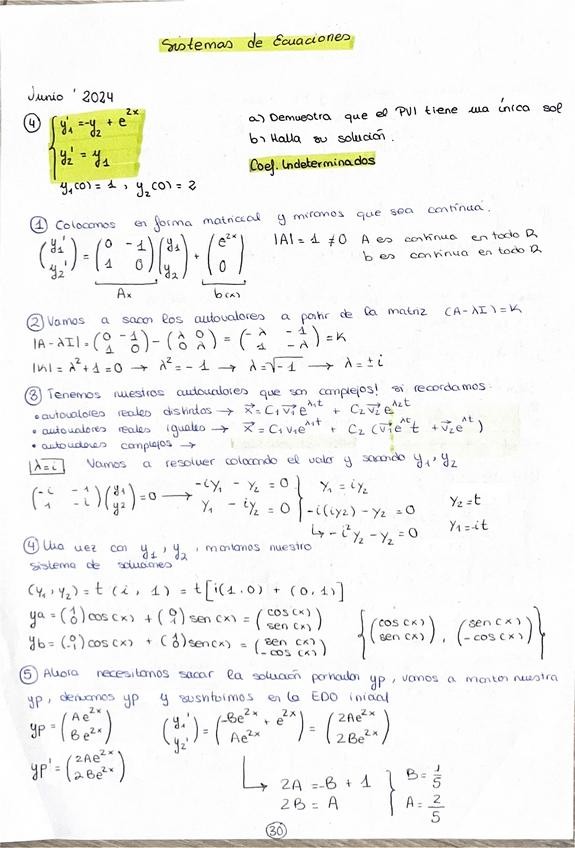 Sistemas de Ecuaciones
Junio ' 2024
④ { y₁' = -y₂ + e^{2x}
y₂' = y₁
y₁(0) = 1 , y₂(0) = 2
a) Demuestra que el PVI tiene una única sol
b) Halla su solución.
Coef. Indeterminados
① Colocamos en forma matricial y miramos que sea continua.
(y₁' / y₂') = (0 -1 / 1 0)(y₁ / y₂) + (e^{2x} / 0)
Ax b(x)
|A| = 1 ≠ 0 A es continua en todo R
b es continua en todo R
② Vamos a sacar los autovalores a partir de la matriz (A-λI) = K
|A-λI| = (0 -1 / 1 0) - (λ 0 / 0 λ) = (-λ -1 / 1 -λ) = K
|K| = λ² + 1 = 0 → λ² = -1 → λ = √-1 → λ = ± i
③ Tenemos nuestros autovalores que son complejos! si recordamos.
• autovalores reales distintos → x⃗ = C₁ v⃗₁ e^{λ₁t} + C₂ v⃗₂ e^{λ₂t}
• autovalores reales iguales → x⃗ = C₁ v₁ e^{λ₁t} + C₂ (v⃗₁ e^{λt} t + v⃗₂ e^{λt})
• autovalores complejos →
|λ = i| Vamos a resolver colocando el valor y sacando y₁, y₂
(-i -1 / 1 -i)(y₁ / y₂) = 0 → -iy₁ - y₂ = 0
y₁ - iy₂ = 0 }
y₁ = iy₂
-i(iy₂) - y₂ = 0
↳ -i²y₂ - y₂ = 0
y₂ = t
y₁ = it
④ Una vez con y₁, y₂, montamos nuestro
sistema de soluciones
(y₁, y₂) = t (i, 1) = t [i(1,0) + (0,1)]
ya = (1 / 0) cos(x) + (0 / 1) sen(x) = (cos(x) / sen(x))
yb = (0 / -1) cos(x) + (1 / 0) sen(x) = (sen(x) / -cos(x))
{ (cos(x) / sen(x)) , (sen(x) / -cos(x)) }
⑤ Ahora necesitamos sacar la solución particular yp, vamos a montar nuestra
yp, derivamos yp y sustituimos en la EDO inicial
yp = (Ae^{2x} / Be^{2x}) (y₁' / y₂') = (-Be^{2x} + e^{2x} / Ae^{2x}) = (2Ae^{2x} / 2Be^{2x})
yp' = (2Ae^{2x} / 2Be^{2x})
↳ 2A = -B + 1
2B = A
} B = 1/5
A = 2/5
30